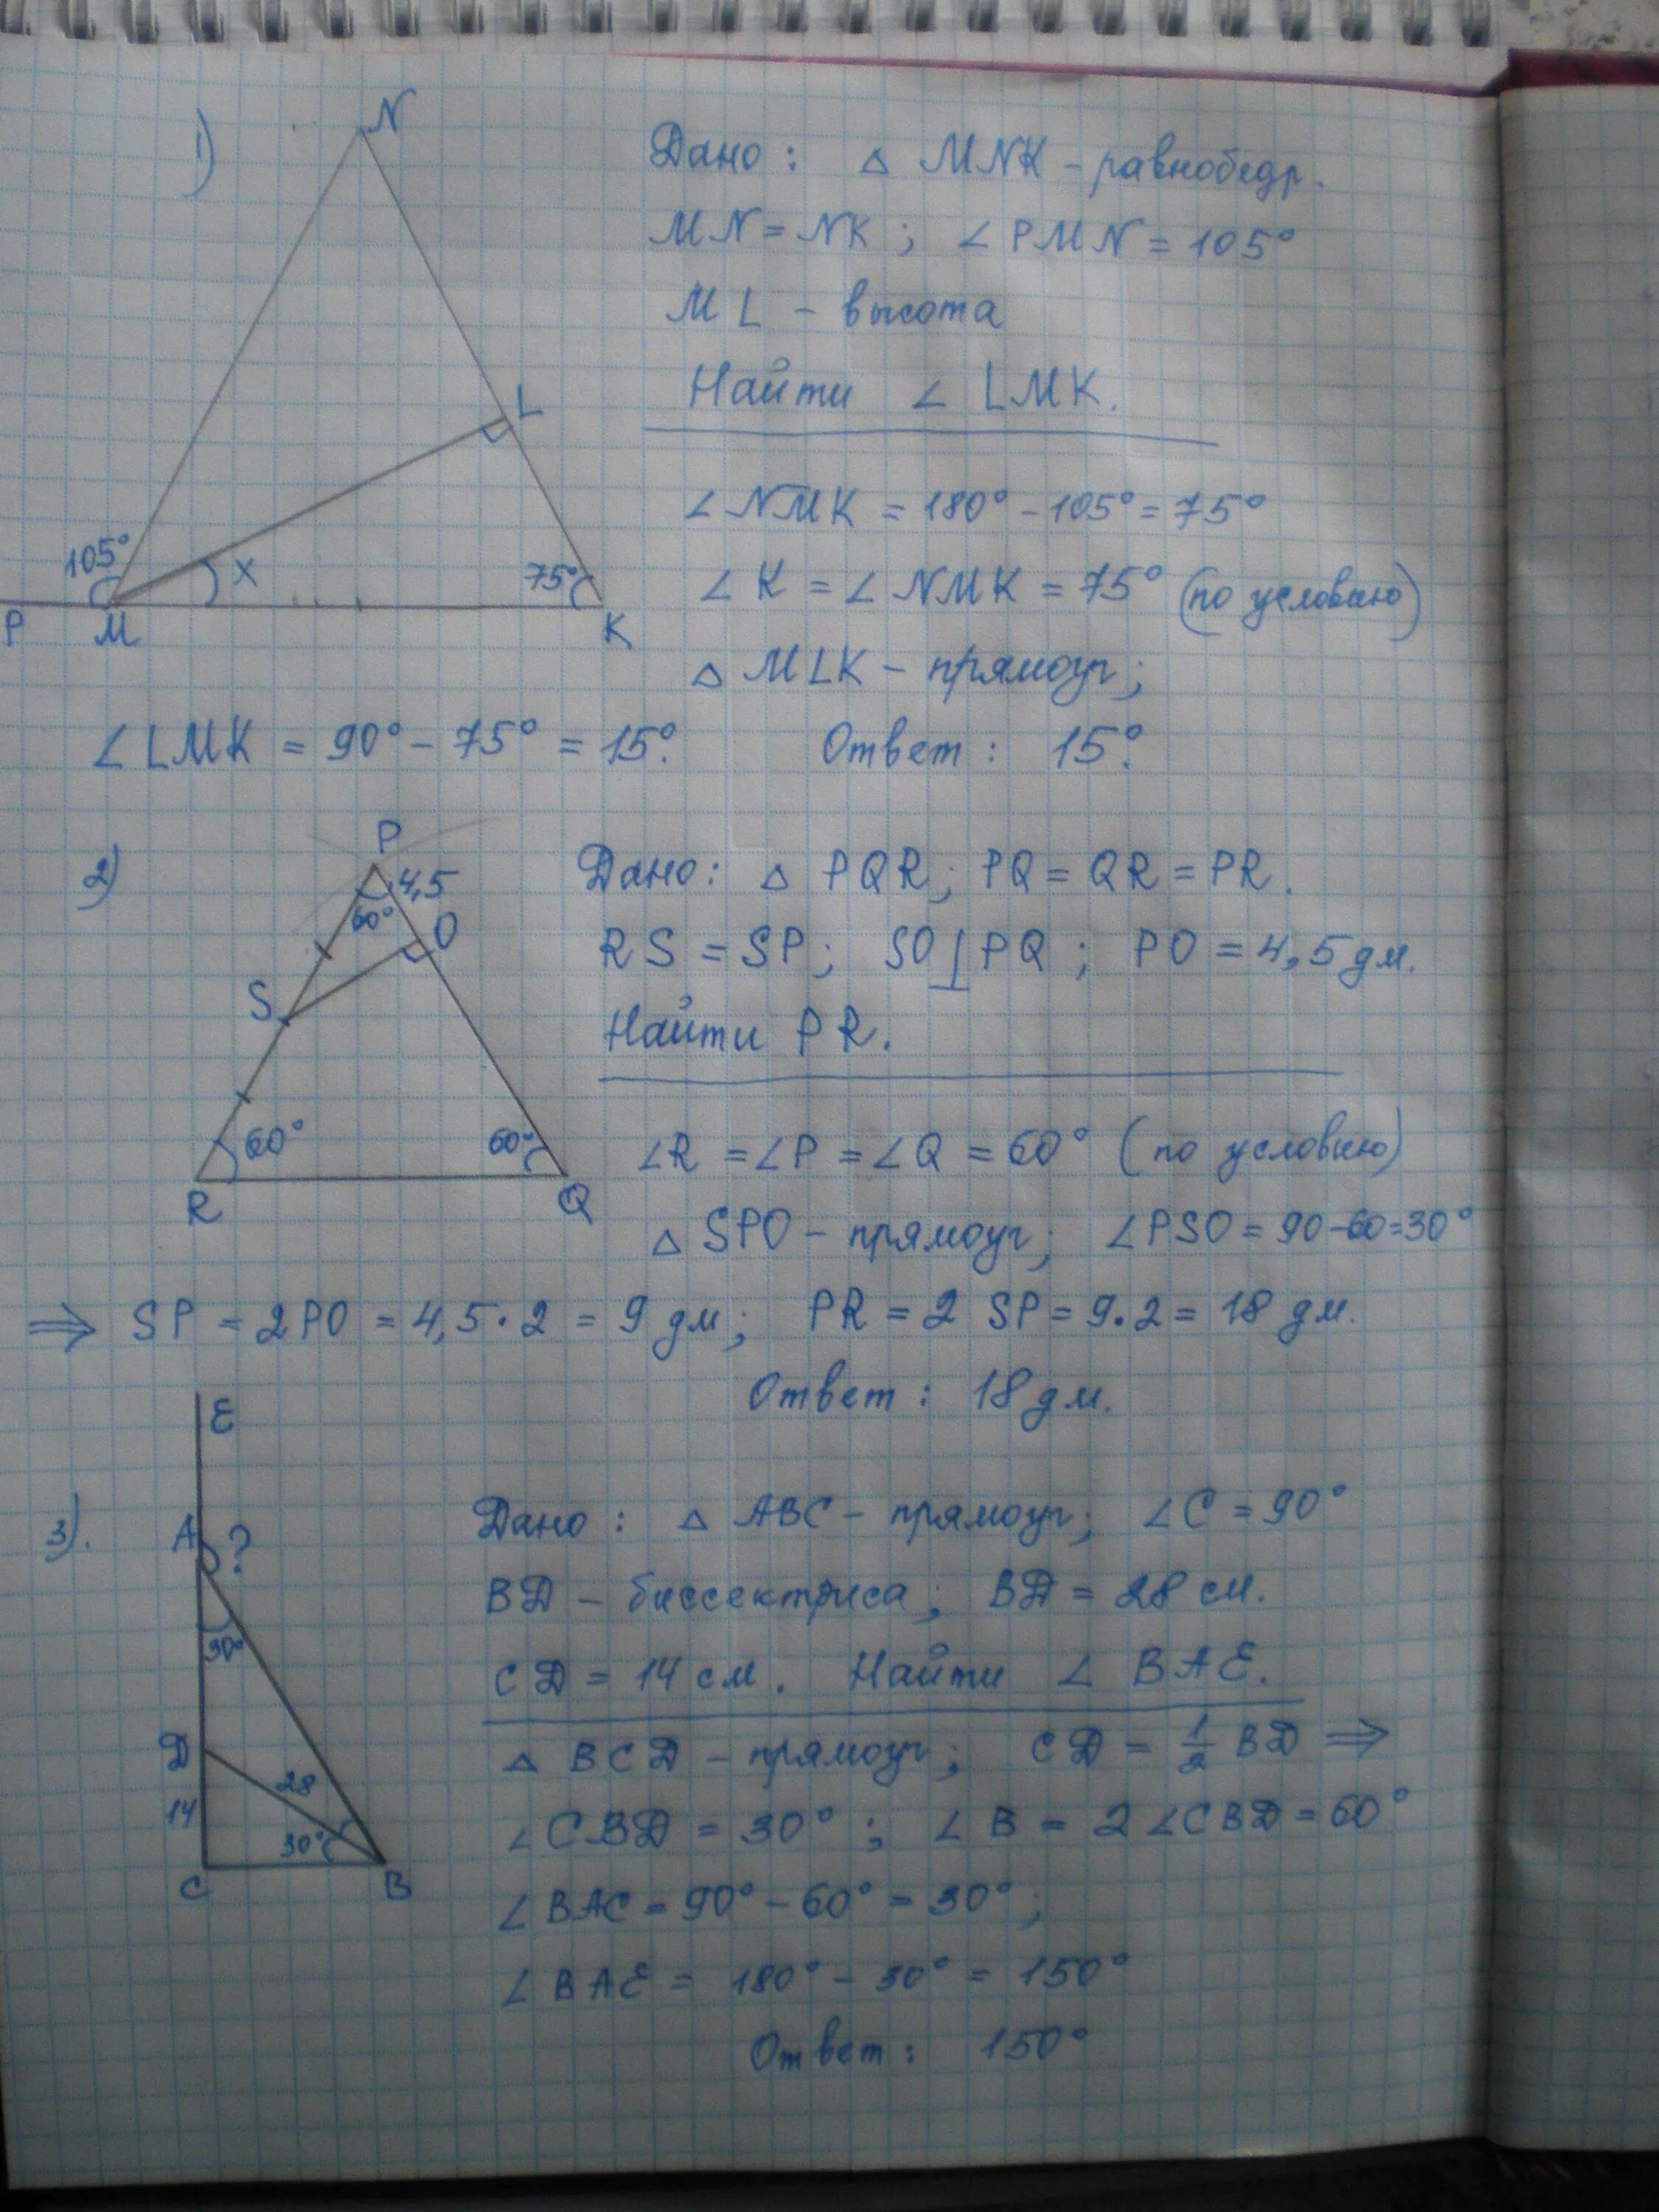 1)
N
L
105°
x
75°
P
M
K
Дано: △ MNK - равнобедр.
MN = NK ; ∠ PMN = 105°
ML - высота
Найти ∠ LMK.
∠ NMK = 180° - 105° = 75°
∠ K = ∠ NMK = 75° (по условию)
△ MLK - прямоуг;
∠ LMK = 90° - 75° = 15°. Ответ: 15°.
2)
P
4,5
60°
O
S
60°
60°
R
Q
Дано: △ PQR; PQ = QR = PR.
RS = SP; SO ⊥ PQ ; PO = 4,5 дм.
Найти PR.
∠R = ∠P = ∠Q = 60° (по условию)
△ SPO - прямоуг; ∠PSO = 90-60=30°
⇒ SP = 2PO = 4,5 · 2 = 9 дм; PR = 2 SP = 9 · 2 = 18 дм.
Ответ: 18 дм.
3).
E
A
?
30°
D
28
14
30°
C
B
Дано: △ ABC - прямоуг; ∠C = 90°
BD - биссектриса; BD = 28 см.
CD = 14 см. Найти ∠ BAE.
△ BCD - прямоуг; CD = 1/2 BD ⇒
∠CBD = 30° ; ∠B = 2∠CBD = 60°
∠BAC = 90° - 60° = 30° ;
∠BAE = 180° - 30° = 150°
Ответ: 150°